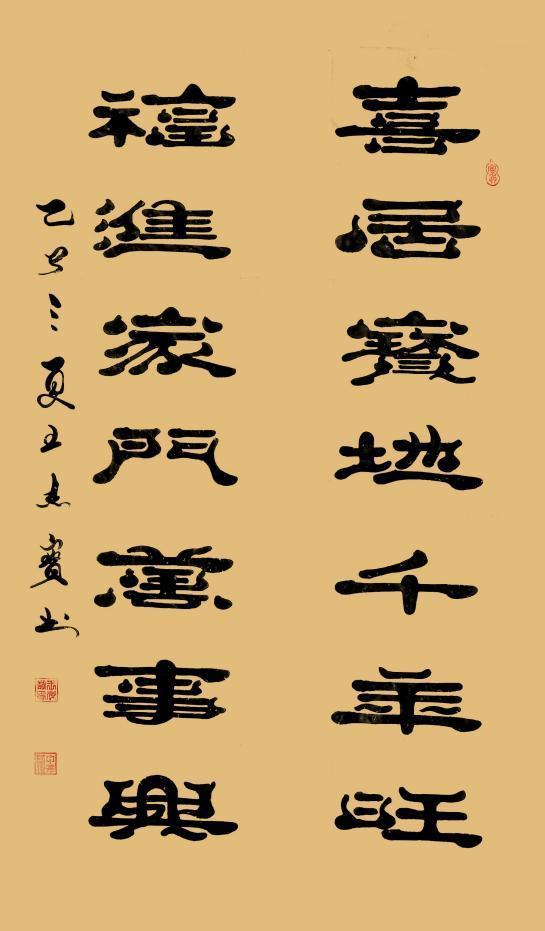 喜居寶地千年旺
福進家門萬事興
乙巳之夏王寶书